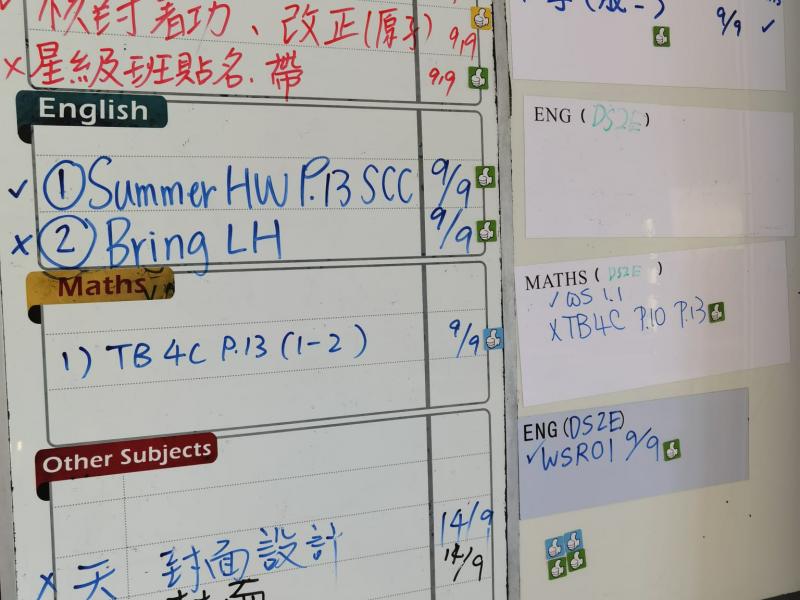 核封着功、改正(原子) 9/9
×星級班貼名.帶 9/9
English
✓ ①Summer HW P.13 SCC 9/9
× ② Bring LH 9/9
Maths
1) TB 4C P.13 (1-2) 9/9
Other Subjects
14/9
× 天 封面設計 14/9
9/9 ✓
ENG (DS2E)
MATHS (DS2E)
✓ WS 1.1
×TB4C P.10 P.13
ENG(DS2E)
✓WSR01 9/9